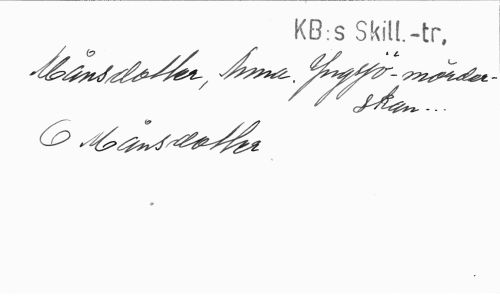 KB:s Skill.-tr.
Månsdotter, Anna. Yngsjö-mörder-
skan...
Månsdotter